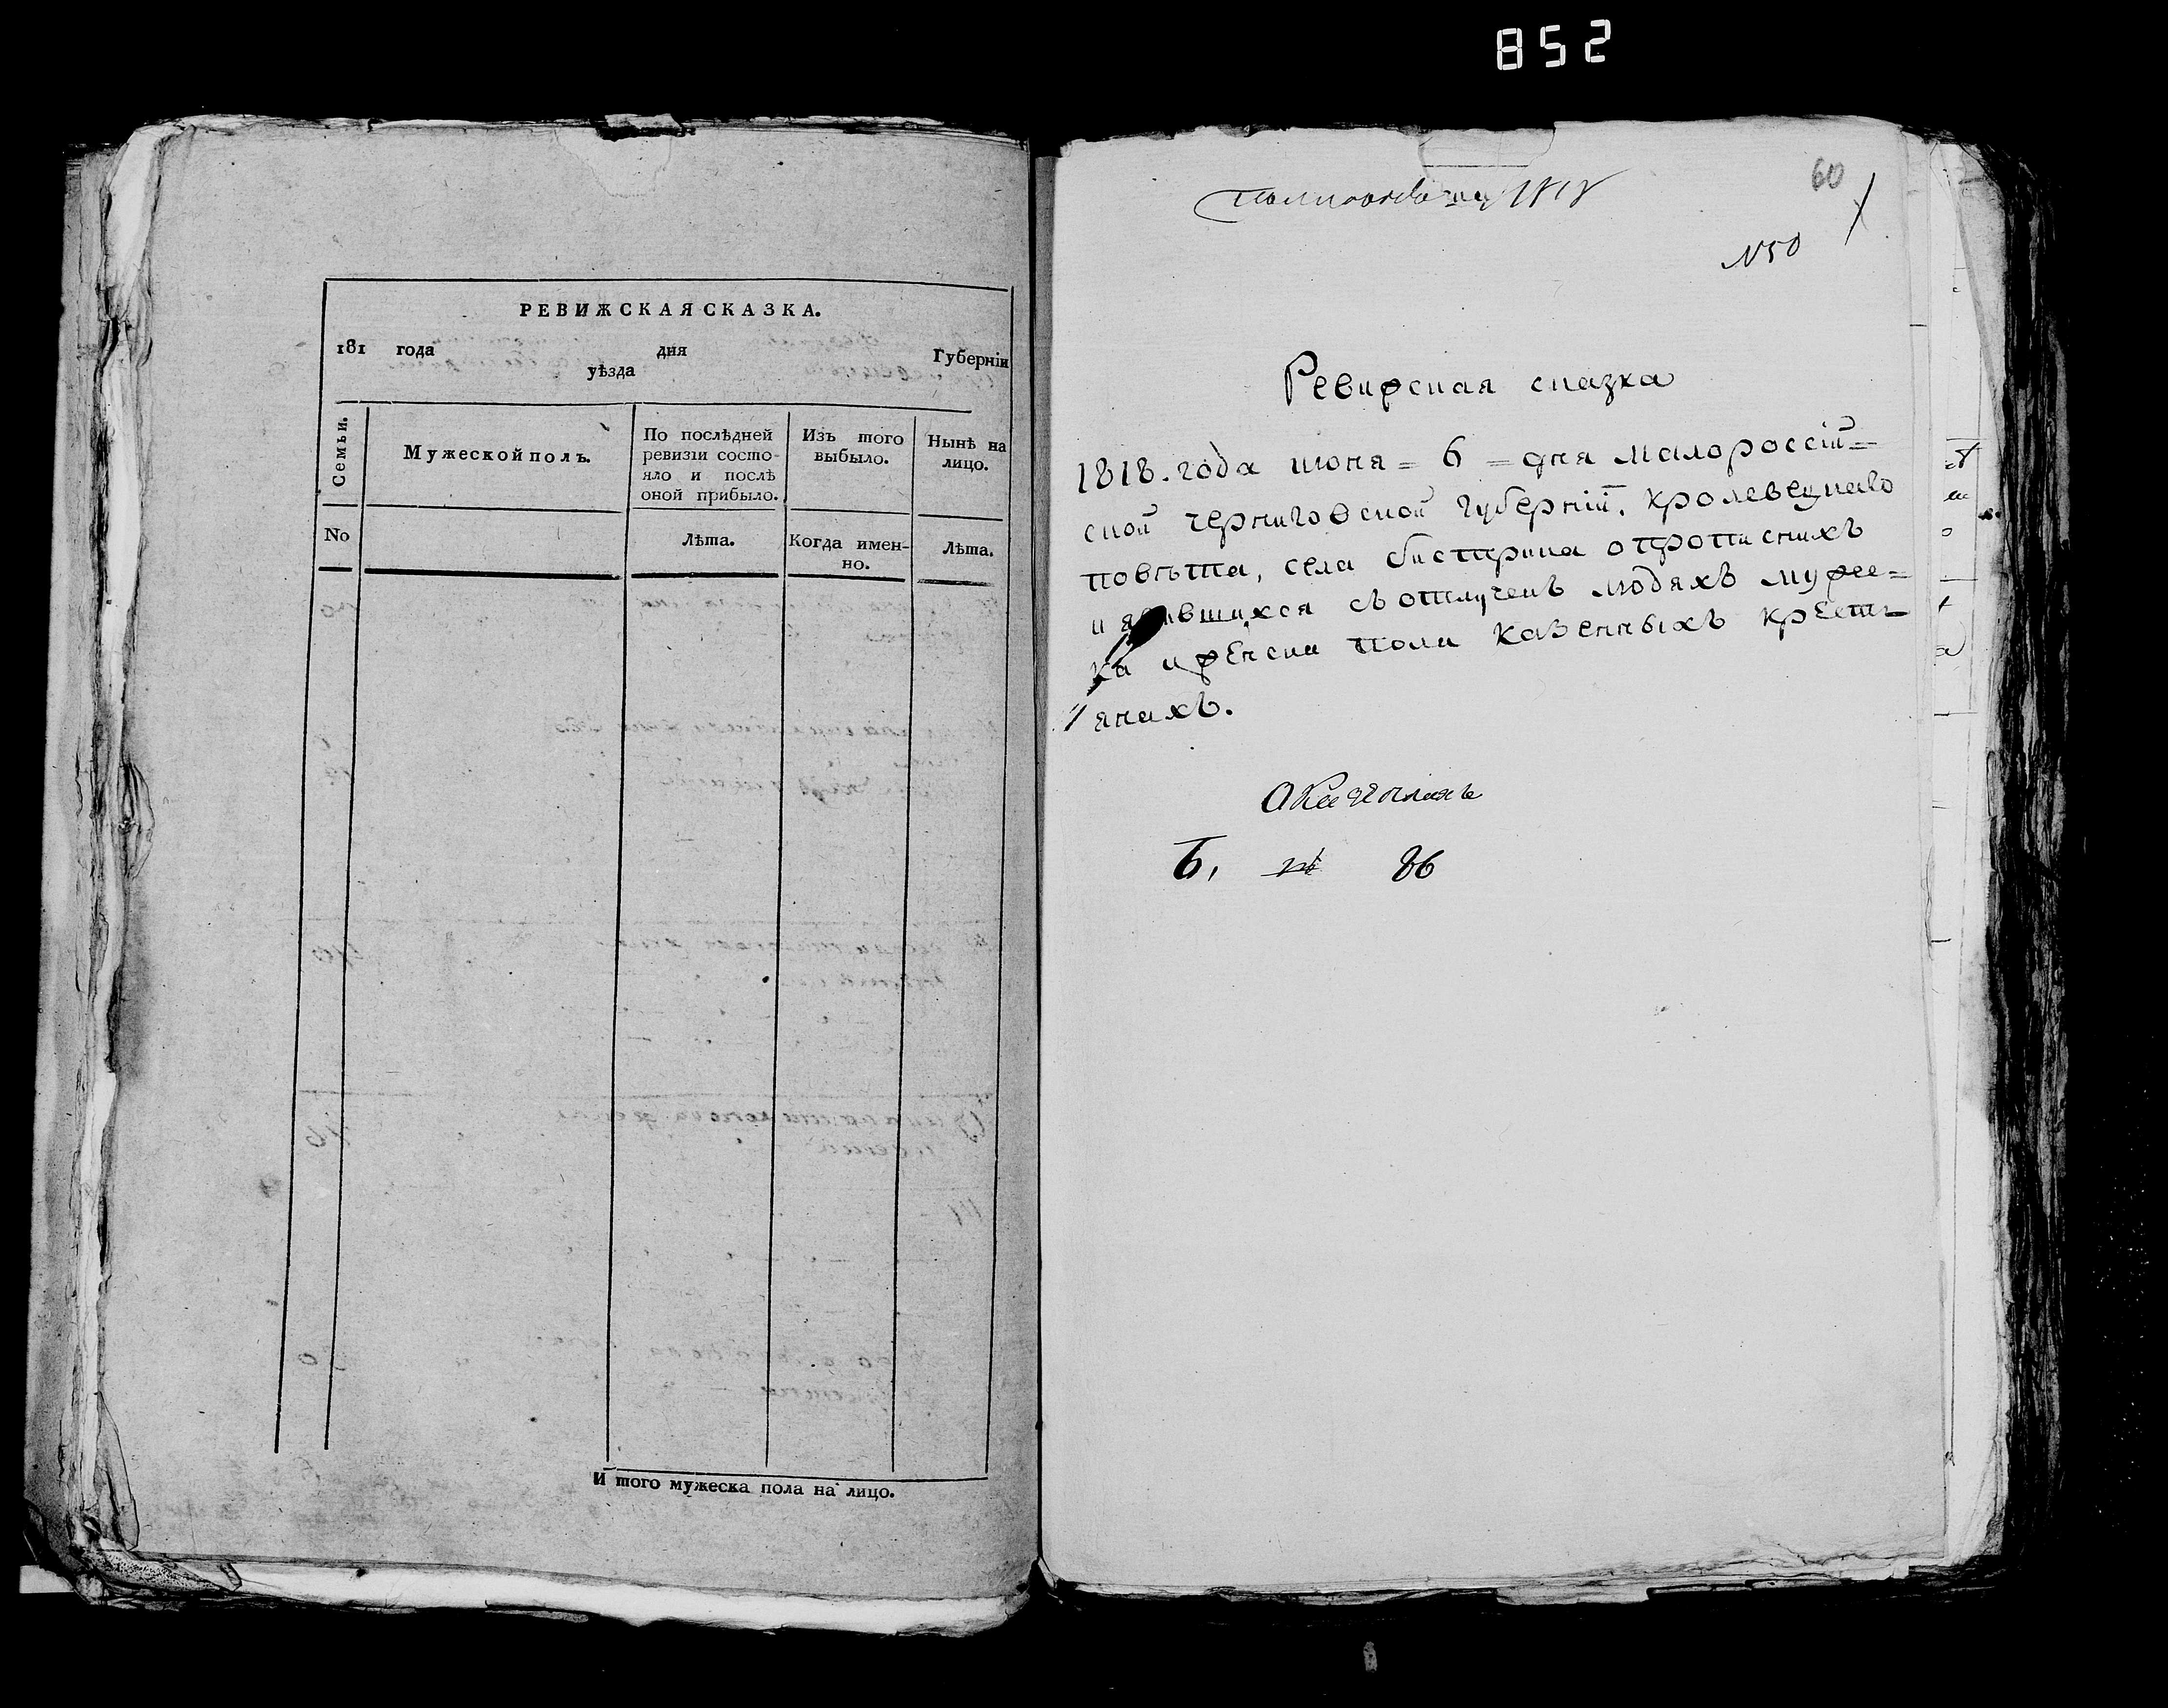 852
РЕВИЖСКАЯ СКАЗКА.
181 года дня Губерніи
уѣзда
Семьи.
Мужеской полъ.
По послѣдней ревизіи состо-
яло и послѣ оной прибыло.
Изъ того выбыло.
Нынѣ на лицо.
No
Лѣта.
Когда имен-
но.
Лѣта.
И того мужеска пола на лицо.
60
1818
N 50
Ревижская сказка
1818. года июня = 6 = дня малороссій=
ской черниговской губерніи, кролевецкаго
повѣта, села бистрика о прописних
и явившихся съ отлучекъ людяхъ мужес=
ка и женска пола казенныхъ крестъ=
янахъ.
Б, 86